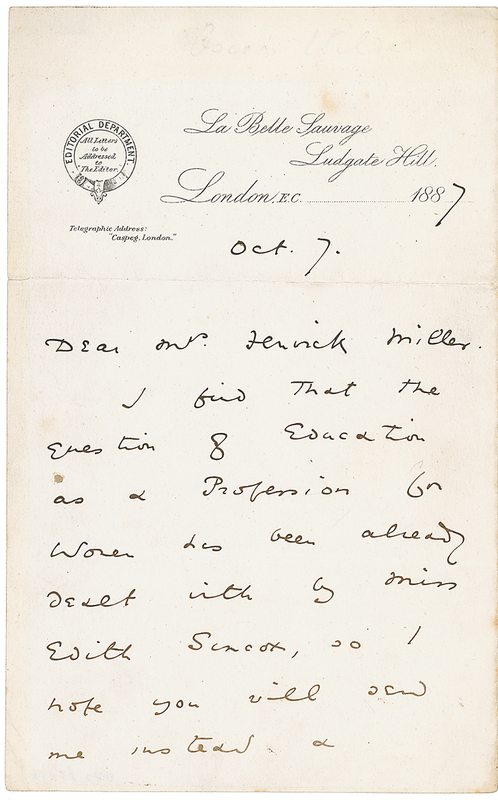 EDITORIAL DEPARTMENT.
All Letters
to be
Addressed
to
The Editor.
La Belle Sauvage
Ludgate Hill,
London, E.C. 1887
Telegraphic Address:
"Caspeg, London."
Oct. 7.
Dear Mrs. Fenwick Miller.
I find that the
question of Education
as a Profession for
Women has been already
dealt with by Miss
Edith Simcox, so I
hope you will send
me instead a